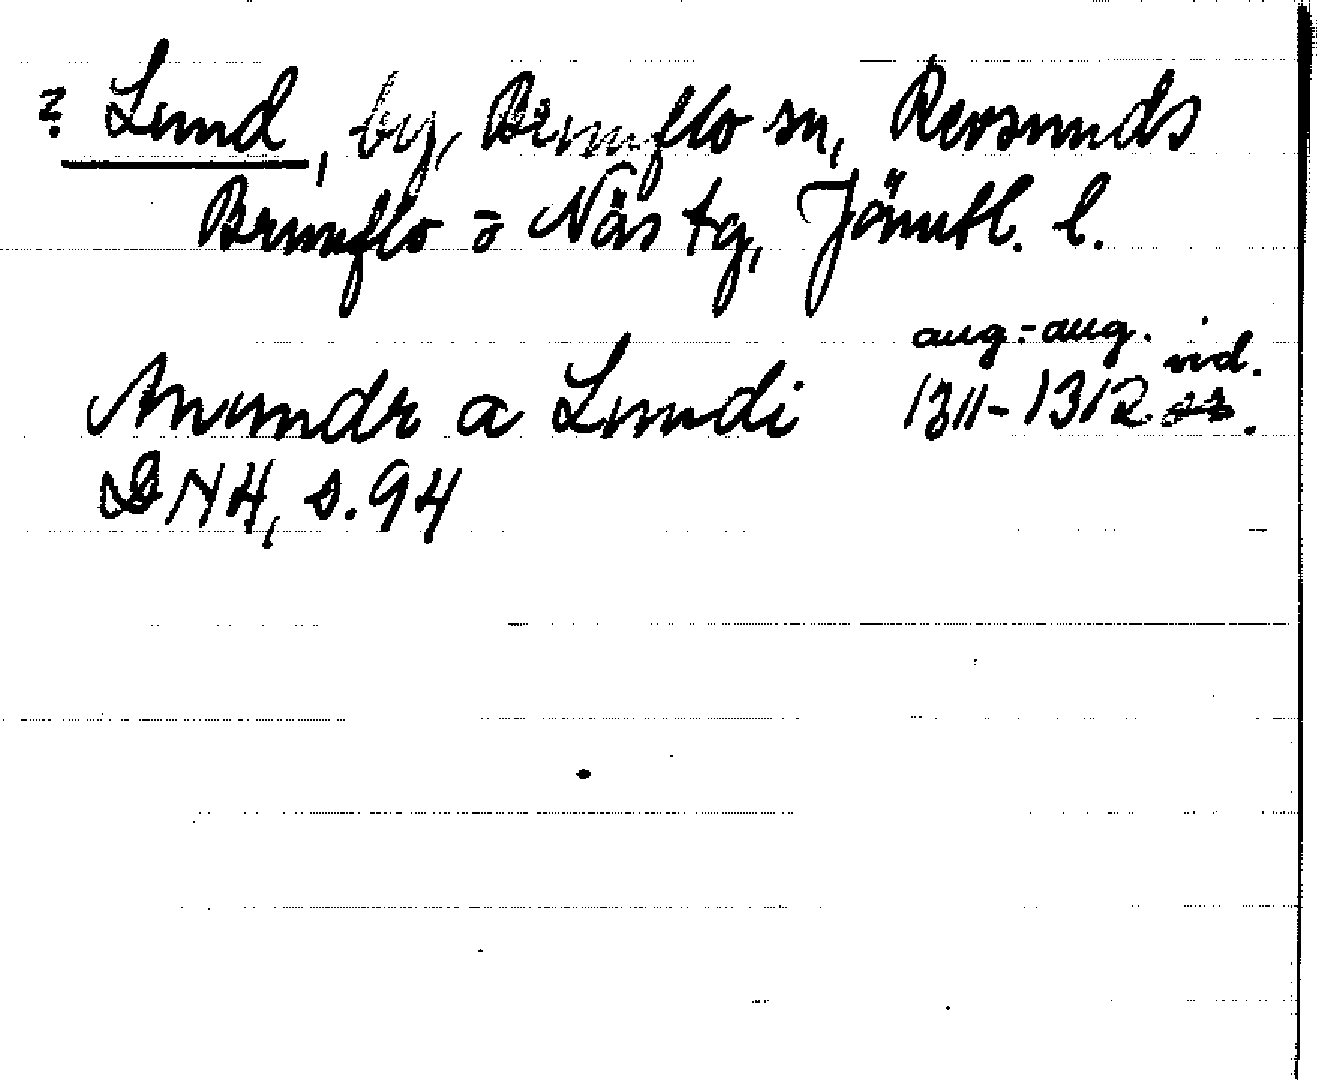 ? Lund, by, Brunflo sn, Revsunds
Brunflo o Näs tg, Jämtl. l.
aug.-aug.
Anundr a Lundi 1311-1312 vid.
DN 14, s. 94